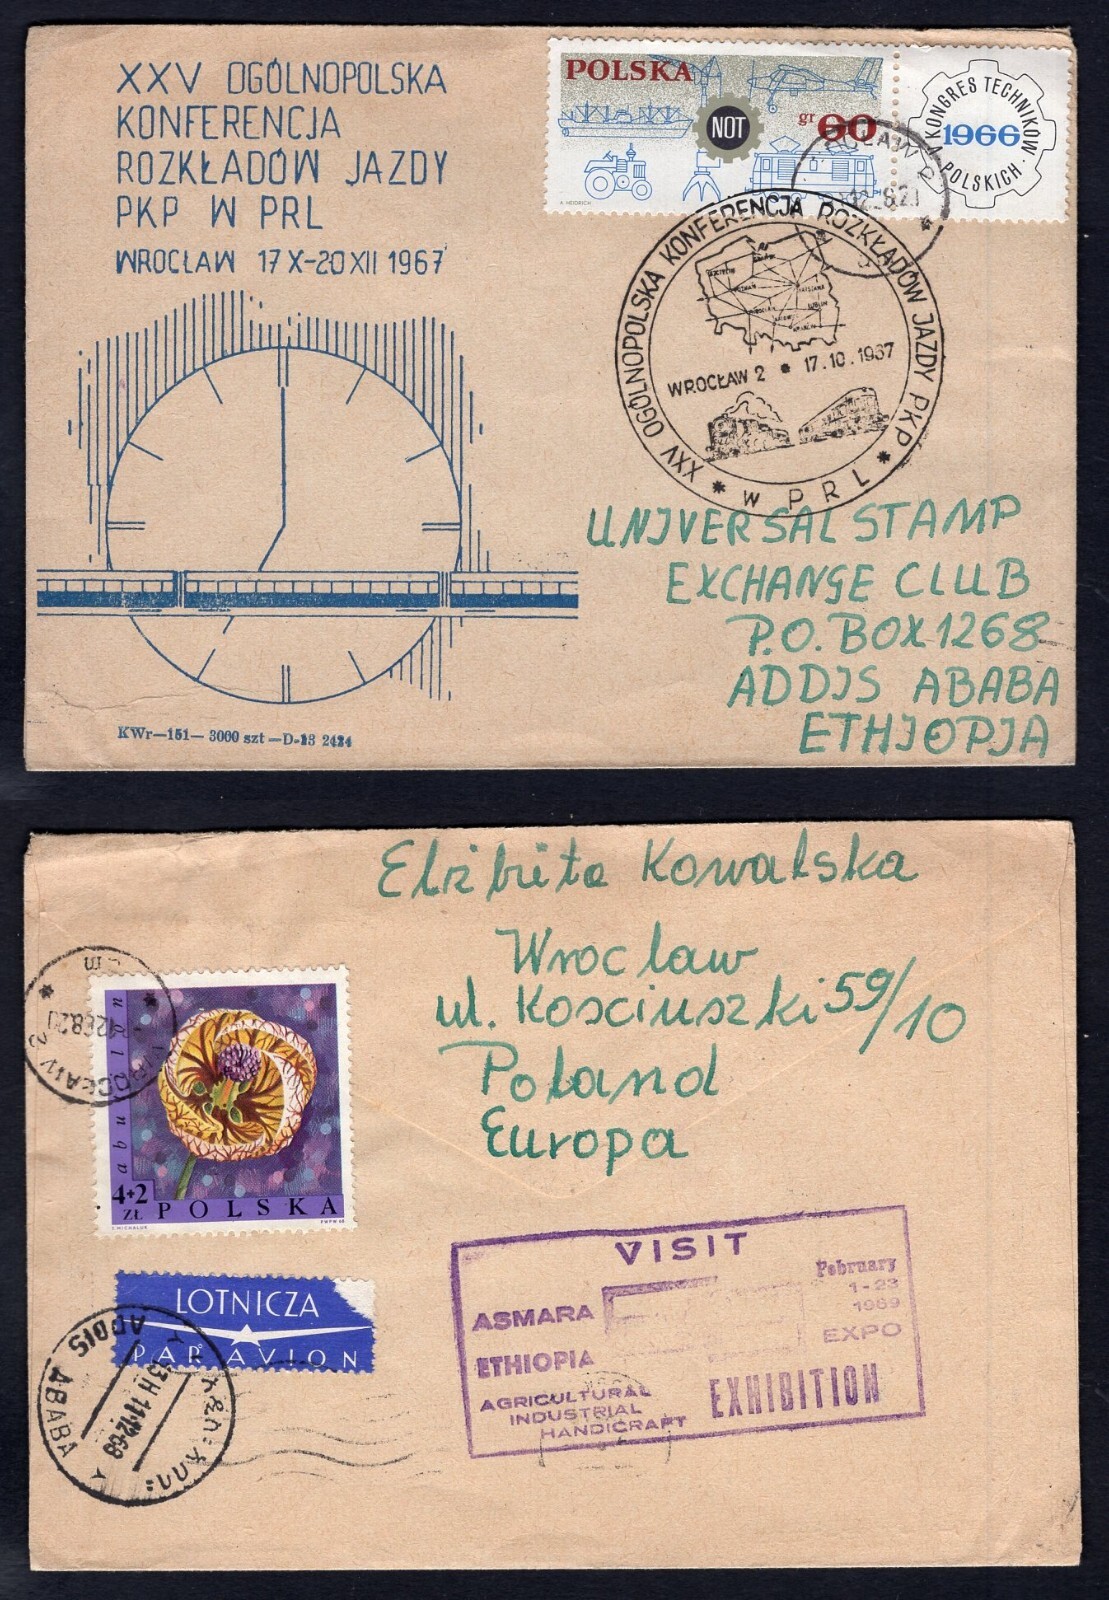 XXV OGÓLNOPOLSKA
KONFERENCJA
ROZKŁADÓW JAZDY
PKP W PRL
WROCŁAW 17 X-20 XII 1967
POLSKA
NOT
gr 60
V KONGRES TECHNIKÓW POLSKICH
1966
XXV OGÓLNOPOLSKA KONFERENCJA ROZKŁADÓW JAZDY PKP
W PRL
WROCŁAW 2 * 17.10.1967
UNIVERSAL STAMP
EXCHANGE CLUB
P.O. BOX 1268
ADDIS ABABA
ETHIOPJA
KWr—151— 3000 szt —D-23 2424
Elżbieta Kowalska
Wrocław
ul. Kosciuszki 59/10
Poland
Europa
WROCŁAW 2
abutilon
4+2
ZŁ POLSKA
LOTNICZA
PAR AVION
ADDIS ABABA
VISIT
ASMARA
ETHIOPIA
AGRICULTURAL
INDUSTRIAL
HANDICRAFT
February
1-23
1969
EXPO
EXHIBITION